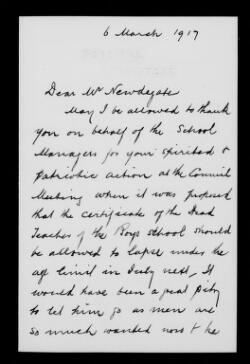 6 March 1917
Dear Mr Newdegate
May I be allowed to thank
you on behalf of the School
Managers for your spirited &
patriotic action at the Council
Meeting when it was proposed
that the certificate of the Head
Teacher of the Boys School should
be allowed to lapse under the
age limit in July next, It
would have been a great pity
to let him go as men are
so much wanted now & he